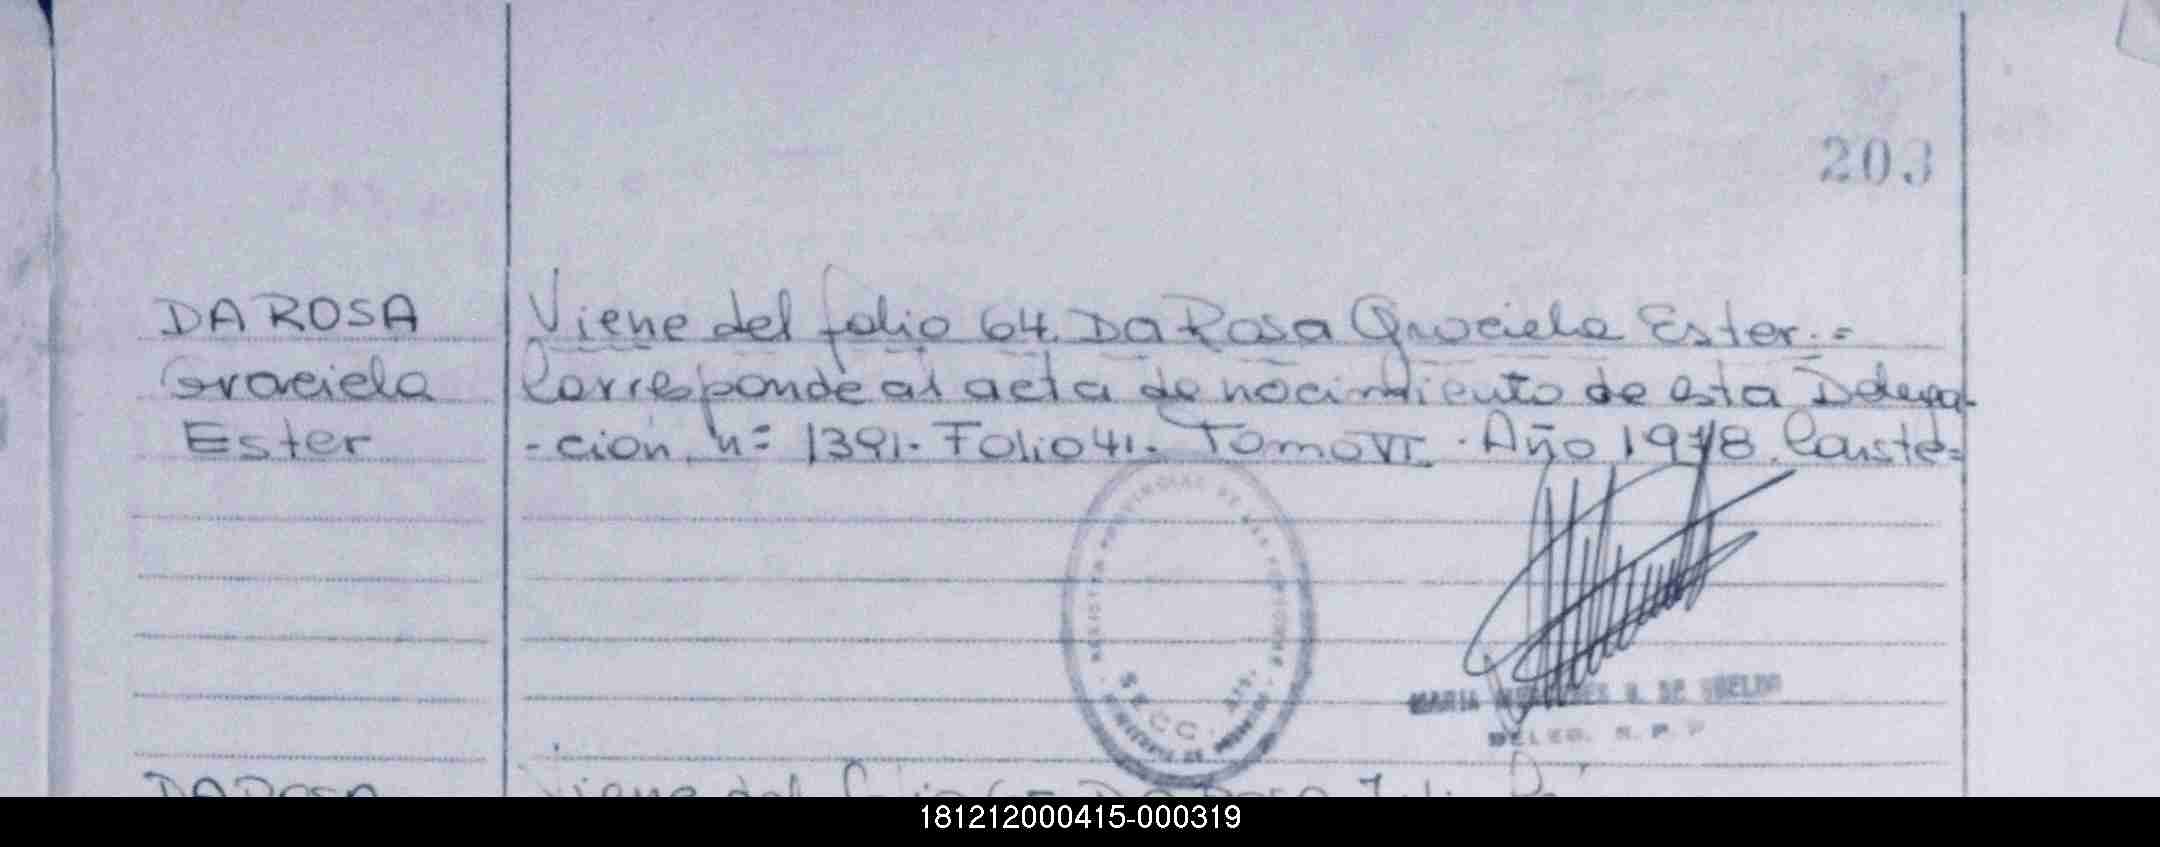 203
DA ROSA
Graciela
Ester
Viene del folio 64. Da Rosa Graciela Ester.=
Corresponde al acta de nacimiento de esta Delega-
-cion, n= 1391. Folio 41. Tomo VI. Año 1978. Conste=
REGISTRO PROVINCIAL DE LAS PERSONAS
SECC.
MARIA DE
DELEG. R. P. P
DA ROSA
Viene del folio DA ROSA
181212000415-000319